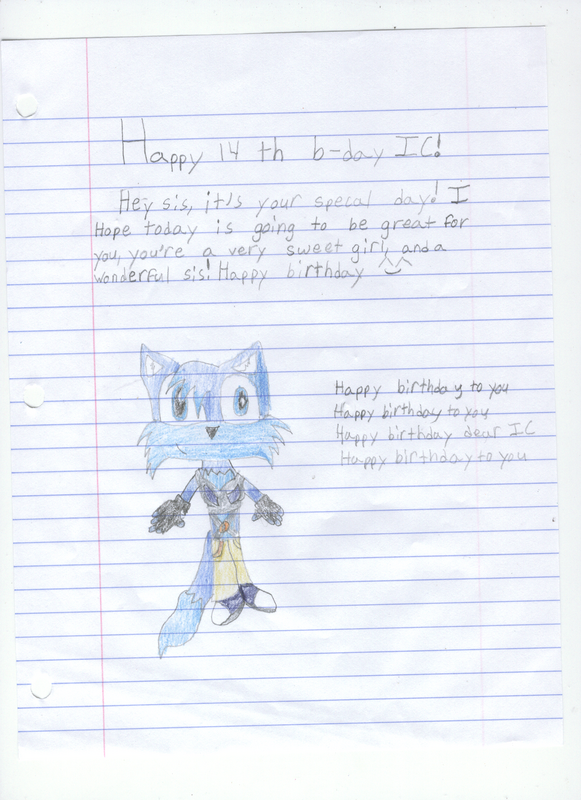 Happy 14 th b-day IC!
Hey sis, it's your special day! I
Hope today is going to be great for
you, you're a very sweet girl, and a
wonderful sis! Happy birthday ^_^
Happy birthday to you
Happy birthday to you
Happy birthday dear IC
Happy birthday to you